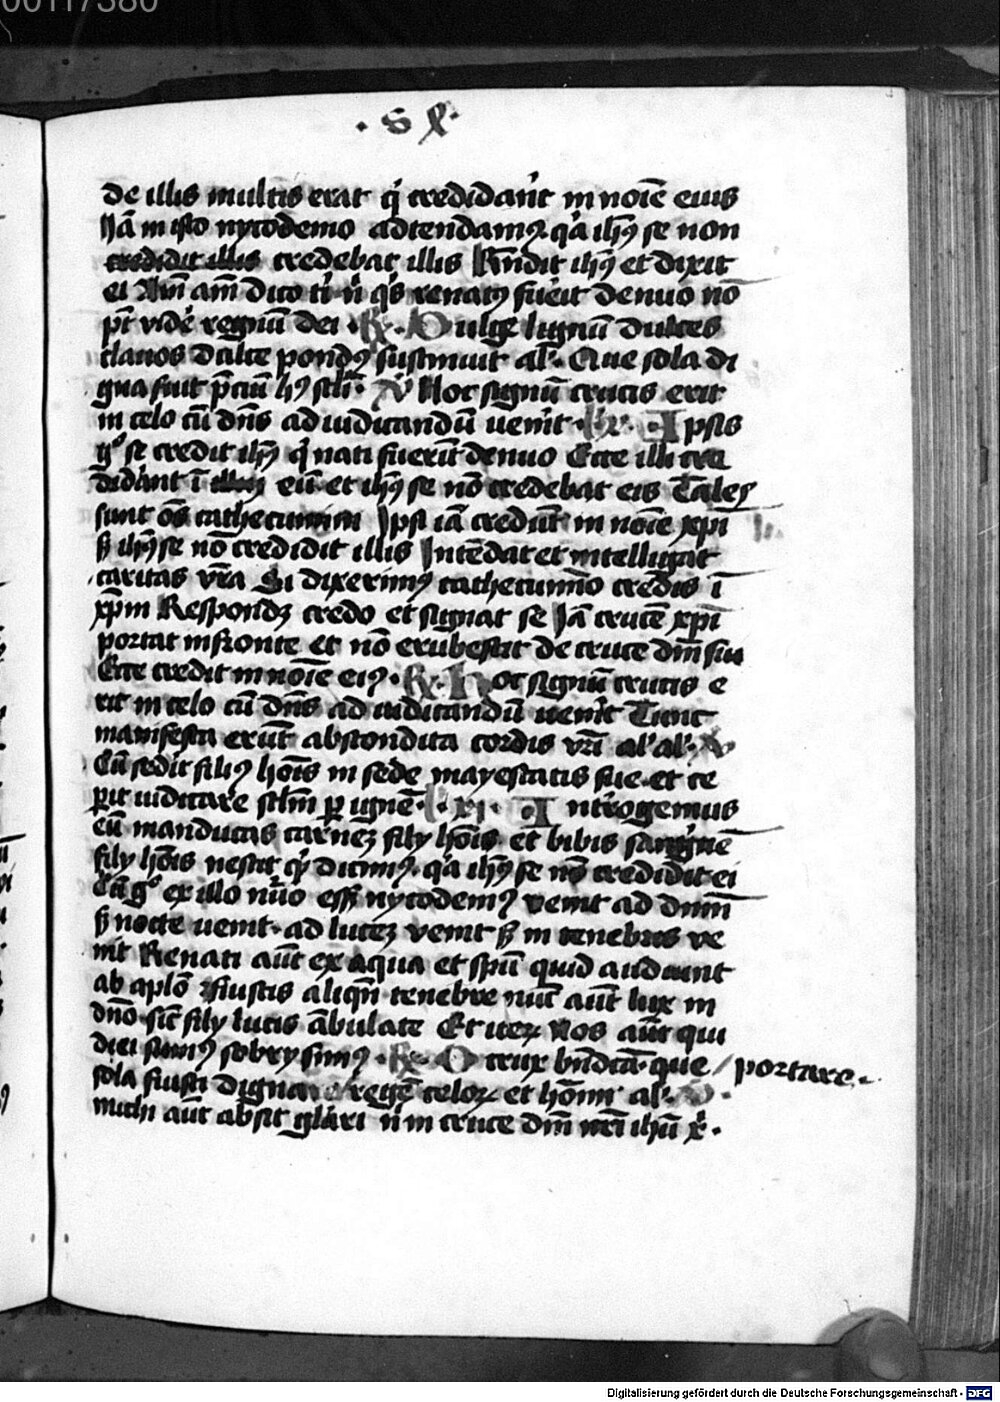 00117380
· S X ·
de illis multis erat q̇ credidar̄t in noīe eius
Jā in isto nycodemo adtendamꝰ q̇a ihꝰ se non
credidit illis credebat illis Rn̄dit ihꝰ et dixit
ei Am̄ am̄ dico ti n̄ q̇s renatꝰ fueit denuo nō
pt̄ vide regnū dei · R · Dulce lignū dulces
clauos dulce pondꝰ sustinuit al̄ · Que sola di
gna fuit p̄ciū hꝰ scl̄i · V Hoc signū crucis erit
in celo cū dn̄s ad iudicandū uenit · Apsis
gͦ se credit ihꝰ q̇ nati fuerūt denuo Ecce illi cre
didānt ī eū et ihꝰ se nō credebat eis Tales
sunt oēs cathecumini Jpsi iā credūt in noīe xp̄i
sꝫ ihꝰ se nō credidit illis Jntēdat et intelligat
caritas vr̄a Si dixerimꝰ cathecumīo credis ī
xp̄m Respondꝫ credo et signat se Jā crucē xp̄i
portat in fronte et nō erubescit de cruce dn̄i sui
Ecce credit in noīe eiꝰ · R · Hoc signū crucis e
rit in celo cū dn̄s ad iudicandū uenit Tunc
manifesta erūt abscondita cordis vr̄i al' al' · V
Cū sedit filiꝰ hoīs in sede mayestatis sue et ce
perit iudicare sclm̄ per ignē · Antrogemus
eū manducas carnēꝫ fily hoīs et bibis sanguinē
fily hoīs nescit q̇ dicimꝰ · q̇a ihꝰ se nō credidit ei
Cū gͦ ex illo nūo essꝫ nycodemꝰ venit ad dnm̄
sꝫ nocte uenit · ad lucēꝫ venit sꝫ in tenebris ve
nit Renati aūt ex aqua et spū quid audiunt
ab aplō fiustis aliqn̄ tenebre nūc aūt lux in
dn̄o sic̄ fily lucis ābulate Et iteꝝ Nos aūt qui
diei sumꝰ sobry simꝰ · R · O crux bn̄dicta · que / portare ·
sola fuisti digna / regē celoꝝ et hoīm al' · V ·
michi aūt absit glāri n̄ in cruce dn̄i nr̄i ihū x̄ ·
Digitalisierung gefördert durch die Deutsche Forschungsgemeinschaft - DFG